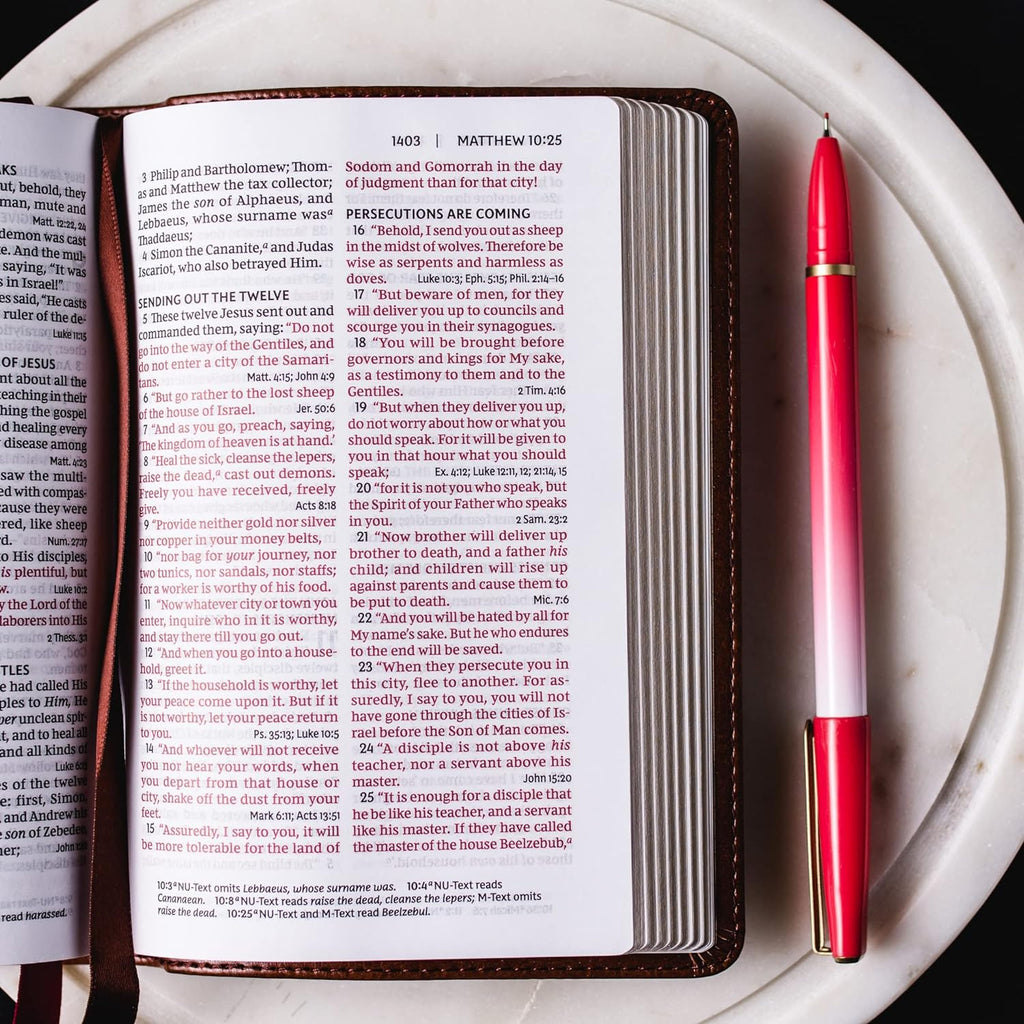 AKS
ut, behold, they
man, mute and
Matt. 12:22, 24
demon was cast
ke. And the mul-
saying, “It was
s in Israel!”
es said, “He casts
ruler of the de-
Luke 11:15
OF JESUS
nt about all the
teaching in their
hing the gospel
d healing every
disease among
Matt. 4:23
saw the multi-
ed with compas-
cause they were
ered, like sheep
rd. Num. 27:17
to His disciples,
is plentiful, but
w. Luke 10:2
y the Lord of the
laborers into His
2 Thess. 3:1
TLES
e had called His
ples to Him, He
per unclean spir-
t, and to heal all
and all kinds of
Luke 6:13
es of the twelve
e: first, Simon,
and Andrew his
son of Zebedee,
her; John 1:
read harassed.
1403 | MATTHEW 10:25
3 Philip and Bartholomew; Thom-
as and Matthew the tax collector;
James the son of Alphaeus, and
Lebbaeus, whose surname wasᵃ
Thaddaeus;
4 Simon the Cananite,ᵃ and Judas
Iscariot, who also betrayed Him.
SENDING OUT THE TWELVE
5 These twelve Jesus sent out and
commanded them, saying: “Do not
go into the way of the Gentiles, and
do not enter a city of the Samari-
tans. Matt. 4:15; John 4:9
6 “But go rather to the lost sheep
of the house of Israel. Jer. 50:6
7 “And as you go, preach, saying,
‘The kingdom of heaven is at hand.’
8 “Heal the sick, cleanse the lepers,
raise the dead,ᵃ cast out demons.
Freely you have received, freely
give. Acts 8:18
9 “Provide neither gold nor silver
nor copper in your money belts,
10 “nor bag for your journey, nor
two tunics, nor sandals, nor staffs;
for a worker is worthy of his food.
11 “Now whatever city or town you
enter, inquire who in it is worthy,
and stay there till you go out.
12 “And when you go into a house-
hold, greet it.
13 “If the household is worthy, let
your peace come upon it. But if it
is not worthy, let your peace return
to you. Ps. 35:13; Luke 10:5
14 “And whoever will not receive
you nor hear your words, when
you depart from that house or
city, shake off the dust from your
feet. Mark 6:11; Acts 13:51
15 “Assuredly, I say to you, it will
be more tolerable for the land of
Sodom and Gomorrah in the day
of judgment than for that city!
PERSECUTIONS ARE COMING
16 “Behold, I send you out as sheep
in the midst of wolves. Therefore be
wise as serpents and harmless as
doves. Luke 10:3; Eph. 5:15; Phil. 2:14–16
17 “But beware of men, for they
will deliver you up to councils and
scourge you in their synagogues.
18 “You will be brought before
governors and kings for My sake,
as a testimony to them and to the
Gentiles. 2 Tim. 4:16
19 “But when they deliver you up,
do not worry about how or what you
should speak. For it will be given to
you in that hour what you should
speak; Ex. 4:12; Luke 12:11, 12; 21:14, 15
20 “for it is not you who speak, but
the Spirit of your Father who speaks
in you. 2 Sam. 23:2
21 “Now brother will deliver up
brother to death, and a father his
child; and children will rise up
against parents and cause them to
be put to death. Mic. 7:6
22 “And you will be hated by all for
My name’s sake. But he who endures
to the end will be saved.
23 “When they persecute you in
this city, flee to another. For as-
suredly, I say to you, you will not
have gone through the cities of Is-
rael before the Son of Man comes.
24 “A disciple is not above his
teacher, nor a servant above his
master. John 15:20
25 “It is enough for a disciple that
he be like his teacher, and a servant
like his master. If they have called
the master of the house Beelzebub,ᵃ
10:3 ᵃ NU-Text omits Lebbaeus, whose surname was. 10:4 ᵃ NU-Text reads
Cananaean. 10:8 ᵃ NU-Text reads raise the dead, cleanse the lepers; M-Text omits
raise the dead. 10:25 ᵃ NU-Text and M-Text read Beelzebul.